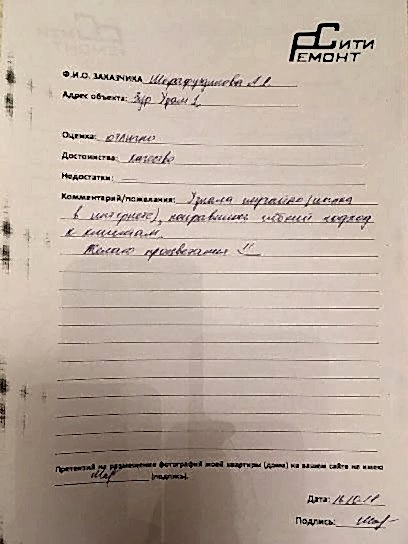 СИТИ
РЕМОНТ
Ф.И.О. ЗАКАЗЧИКА Шарафутдинова А.Р.
Адрес объекта:
Оценка: отлично
Достоинства: качество
Недостатки:
Комментарий/пожелания: Узнала случайно (искала
в интернете), понравился гибкий подход
к клиентам.
Желаю процветания !!
Претензий на размещение фотографий моей квартиры (дома) на вашем сайте не имею
(подпись).
Дата:
Подпись: